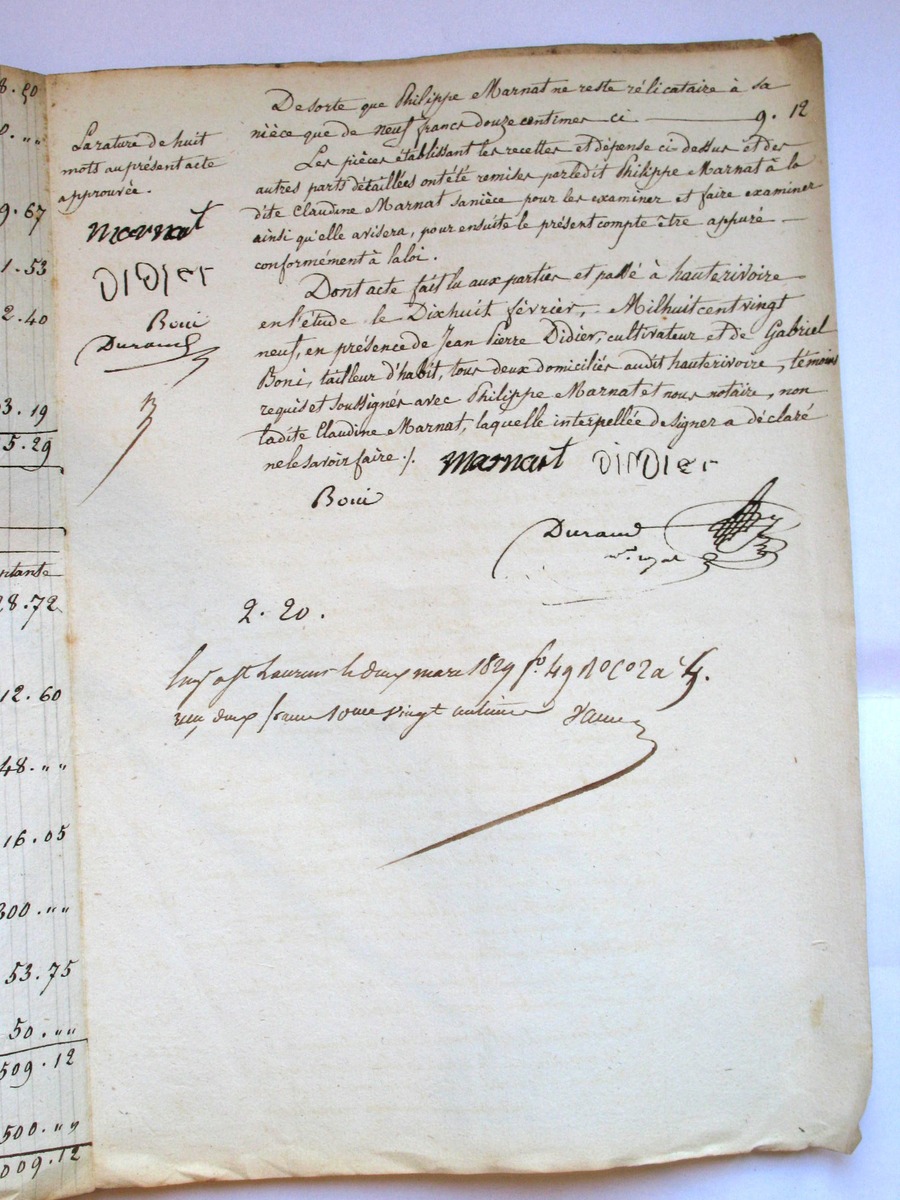 8.50
0. „„
9.67
1.53
2.40
3.19
5.29
28.72
12.60
48. „„
16.05
300. „„
53.75
50. „„
509.12
500. „„
009.12
La rature de huit
mots au présent acte
approuvée.
Marnat
DIDIER
Boni
Durand
De sorte que Philippe Marnat ne reste rélicataire à sa
nièce que de neuf francs douze centimes ci 9. 12
Les pièces établissant les recettes et dépense ci-dessus et des
autres parts détaillées ont été remises par ledit Philippe Marnat à la
dite Claudine Marnat sa nièce pour les examiner et faire examiner
ainsi qu'elle avisera, pour ensuite le présent compte être appuré
conformément à la loi.
Dont acte fait lu aux parties et passé à hauterivoire
en l'étude le Dix huit février, Mil huit cent vingt
neuf, en présence de Jean Pierre Didier, cultivateur et de Gabriel
Boni, tailleur d'habit, tous deux domiciliés audit hauterivoire, témoins
requis et soussignés avec Philippe Marnat et nous notaire, non
ladite Claudine Marnat, laquelle interpellée de signer a déclaré
ne le savoir faire ./. Marnat DIDIER
Boni
Durand
2. 20.
le deux mars 1829 fo. 49
deux francs vingt centimes